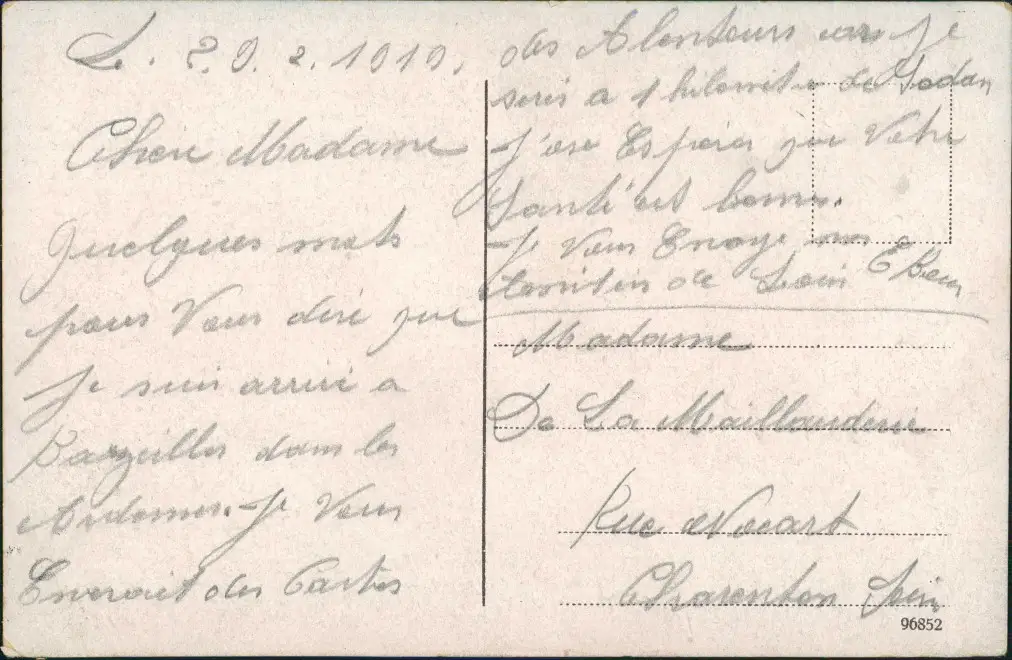 Le. 20. 2. 1919.
Chere Madame
Quelques mots
pour Vous dire que
Je suis arrivé a
Bazeilles dans les
Ardennes. Je Vous
Enverait des Cartes
des Alentours car Je
suis a 1 kilomitre de Sedan
J'ose Esperer que Votre
Santé est bonne.
Je Vous Envoye mon
de Loin
Madame
De La Maillouderie
Rue Nocart
Charenton Seine
96852